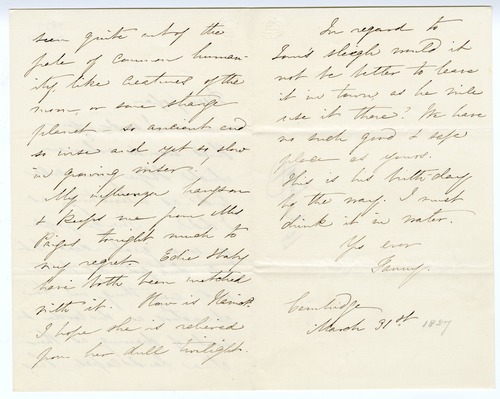 seem quite out of the
pale of common human-
ity, like creatures of the
moon, or some strange
planet so ancient and
so wise and yet so slow
in growing wiser!
My influenza hangs on
& keeps me from Mrs
Paiges tonight much to
my regret. Edie & baby
have both been
with it. How is
I hope she is relieved
from her dull twilight.
In regard to
Tom's sleigh would it
not be better to leave
it in town, as he will
use it there? We have
no such good & safe
place as yours.
This is his birthday
by the way. I must
drink it in water.
Yrs ever
Fanny.
Cambridge
March 31st 1857